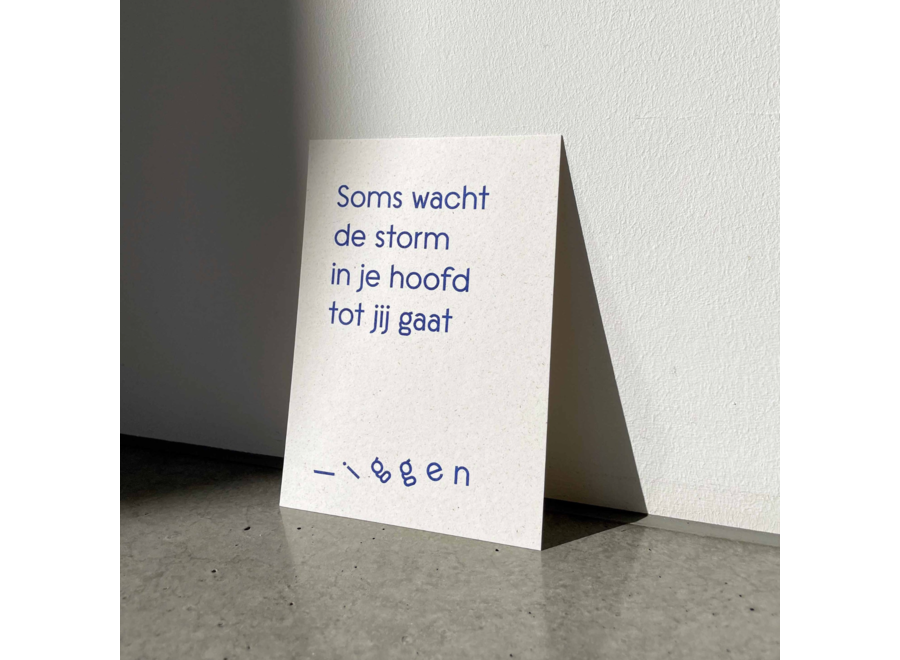 Soms wacht
de storm
in je hoofd
tot jij gaat
liggen